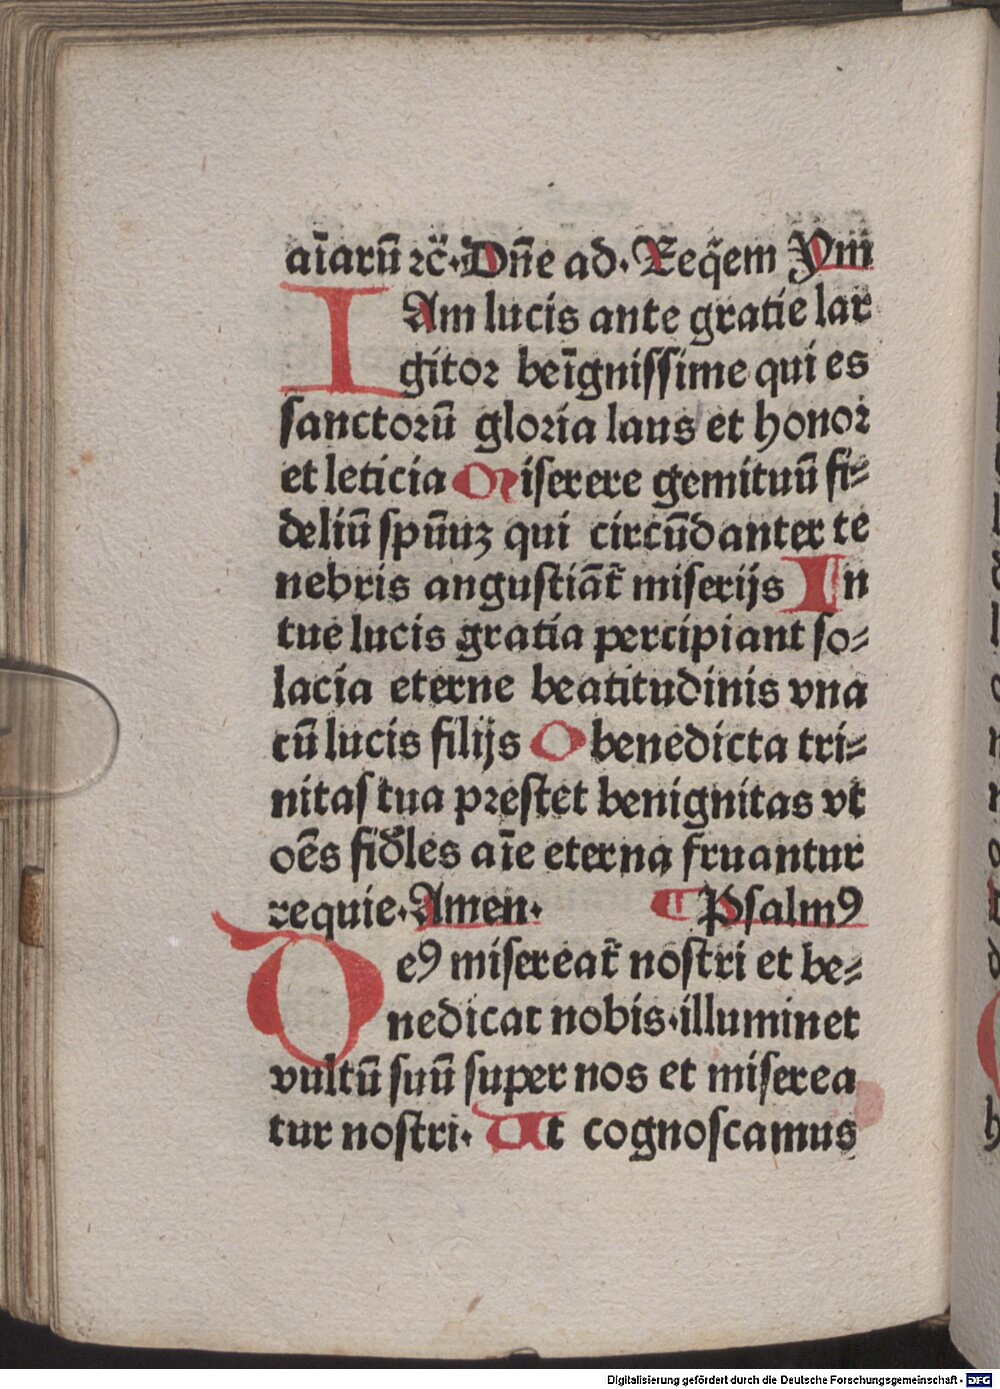 aīarū ⁊c̄·Dn̄e ad·Reqēm Ym
IAm lucis ante gratie lar
gitor beīgnissime qui es
sanctorū gloria laus et honor
et leticia Miserere gemituū fi⸗
deliū spūuꝫ qui circūdanter te
nebris angustiāt᷑ miserijs In
tue lucis gratia percipiant so⸗
lacia eterne beatitudinis vna
cū lucis filijs O benedicta tri⸗
nitas tua prestet benignitas vt
oēs fid̄les aīe eterna fruantur
requie·Amen· ¶ Psalmꝰ
Deꝰ misereat᷑ nostri et be⸗
nedicat nobis·illuminet
vultū suū super nos et miserea
tur nostri· Ut cognoscamus
Digitalisierung gefördert durch die Deutsche Forschungsgemeinschaft - DFG